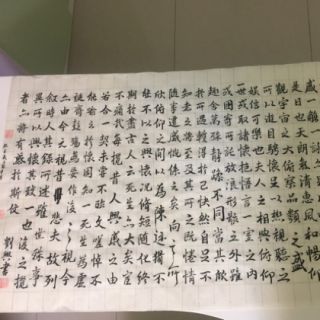 是日也天朗氣清惠風和暢仰
觀宇宙之大俯察品類之盛
可以遊目騁懷足以極視聽之
娛信可樂也夫人之相與俯仰
一世或取諸懷抱悟言一室之內
或因寄所託放浪形骸之外雖
趣舍萬殊靜躁不同當其欣
於所遇暫得於己快然自足不
知老之將至及其所之既倦情
隨事遷感慨係之矣向之所
欣俯仰之間以為陳迹猶不
能不以之興懷況修短隨化終
期於盡古人云死生亦大矣豈
不痛哉每攬昔人興感之由
若合一契未嘗不臨文嗟悼不
能喻之於懷固知一死生為虛
誕齊彭殤為妄作後之視今
亦由今之視昔悲夫故列
敘時人錄其所述雖世殊事
異所以興懷其致一也後之攬
者亦將有感於斯文